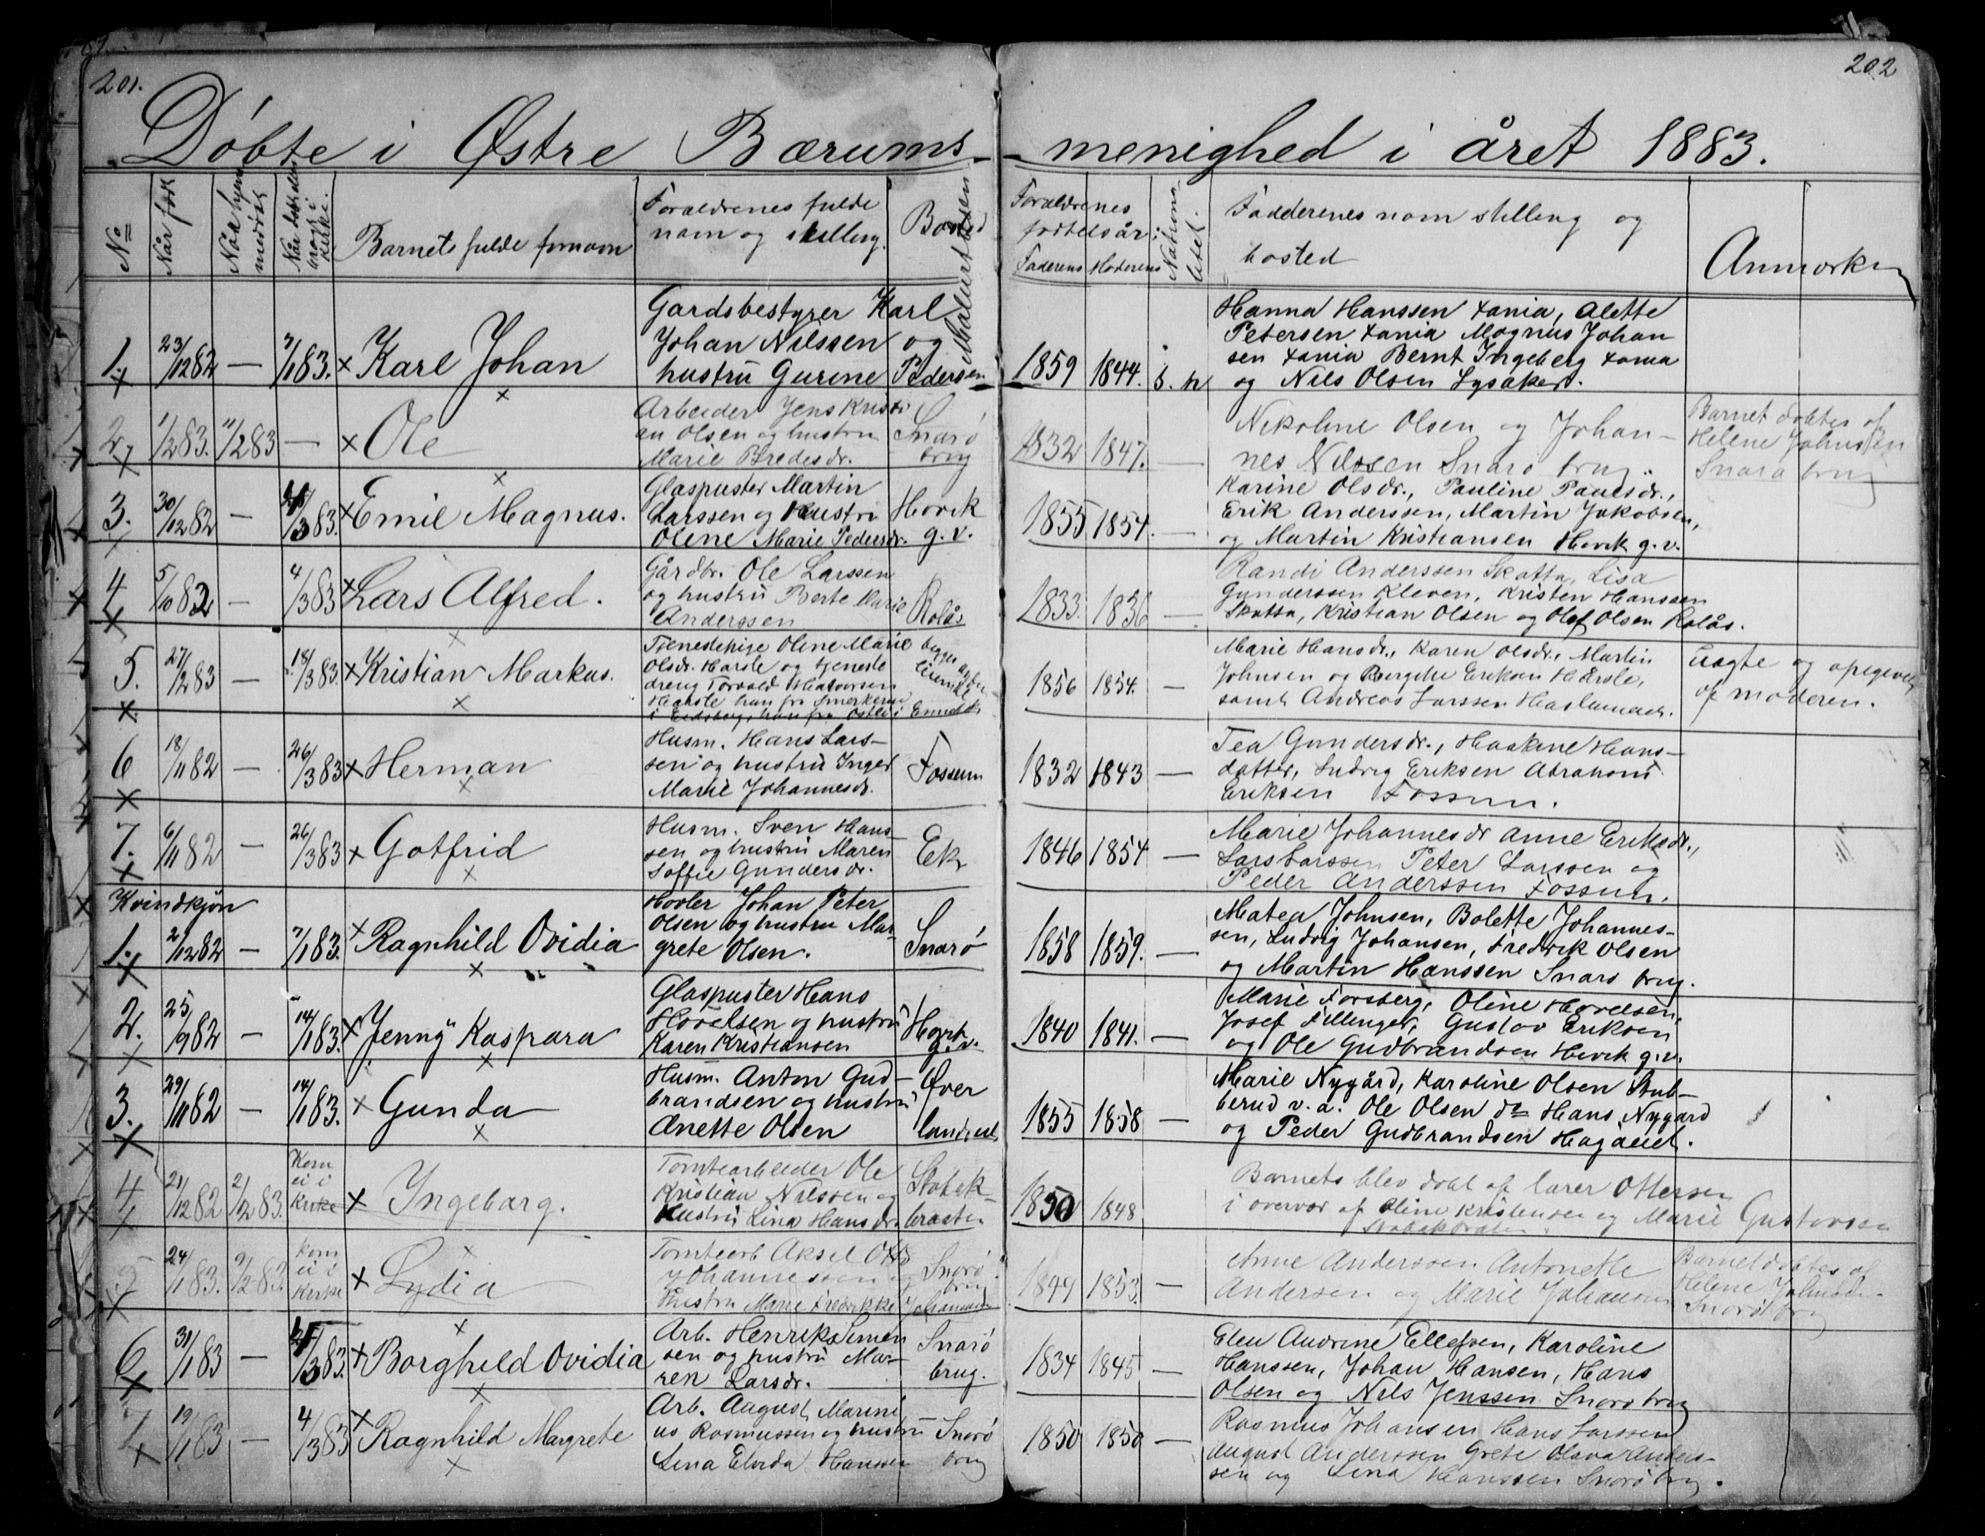 201.
202
Døbte i Østre Bærums
menighed i året 1883.
No
Når født
Når hjemmedøbt
Barnets fulde fornavn
Forældrenes fulde
navn og stilling.
Bosted
Forældrenes
fødselsår:
Faderens Moderens
Faddernes navn stilling og
bosted
Anmærkn
1. 23/12 82 — 7/1 83. Karl Johan
Gardsbestyrer Karl
Johan Nilssen og
hustru Gurine Pedersen
1859 1844. s. n
Hanna Hanssen Lania, Alette
Petersen Lania Magnus Johan
sen Lania Bernt Ingeberg Lania
og Nils Olsen Lysaker.
2. 1/2 83. 11/2 83 — Ole
Arbeider Jens Kristi
an Olsen og hustru
Marie Bredesdr.
Snarø
brug
1832 1847. —
Nikoline Olsen og Johan—
nes Nilssen Snarø brug.
Barnet døbtes af
Helene Johnsen
Snarø brug
3. 30/12 82 — 4/3 83. Emil Magnus.
Glaspuster Martin
Larssen og hustru
Olene Marie Pedersdr.
Høvik
g. v.
1855 1854. —
Karine Olsdr., Pauline Paulsdr.,
Erik Anderssen, Martin Jakobsen,
og Martin Kristiansen Høvik g. v.
4 5/10 82 — 4/3 83 Lars Alfred.
Gårdbr. Ole Larssen
og hustru Berte Marie
Anderssen
Kolås
1833. 1836 —
Randi Anderssen Skotta, Lisa
Gunderssen Kleven, Kristen Hanssen
Skotta, Kristian Olsen og Olef Olsen Kolås.
5. 27/12 83 — 18/3 83. Kristian Markus.
Tjenestepige Oline Marie
Olsdr. Harsle og tjeneste
dreng Torvald
1856 1854. —
Marie Hansdr., Karen Olsdr., Martin
Johnsen og Bergithe Eriksen Harsle,
samt Andreas Larssen
Uægte og opgivelse
af moderen.
6 18/11 82 — 26/3 83 Herman
Husm. Hans Lars—
sen og hustru Inger
Marie Johannesdr.
Fossum
1832 1843 —
Tea Gundersdr., Maskine Hans—
datter, Ludvig Eriksen Abrahams
Eriksen Fossum.
7. 6/11 82 — 26/3 83 Gotfrid
Husm. Sven Hans—
sen og hustru Maren
Soffie Gundersdr.
Ek
1846 1854 —
Marie Johannesdr Anne Eriksdr.,
Lars Larssen Peter Larssen og
Peder Anderssen Fossum.
Kvindkjøn
1. 2/12 82 — 7/1 83. Ragnhild Ovidia
Høvler Johan Peter
Olsen og hustru Mar—
grete Olsen.
Snarø
1858 1859. —
Matea Johnsen, Bolette Johannes—
sen, Ludvig Johansen, Fredrik Olsen
og Martin Hanssen Snarø brug.
2. 25/9 82 — 14/1 83. Jenny Kaspara
Glaspuster Hans
Hovelsen og hustru
Karen Kristiansen
Høvik
g. v.
1840 1841. —
Marie Forsberg, Oline Hovelsen,
Josef Fillinger, Gustav Eriksen
og Ole Gudbrandsen Høvik g. v.
3. 29/11 82 — 14/1 83. Gunda
Husm. Anton Gud—
brandsen og hustru
Anette Olsen
Øver
landseie
1855 1858 —
Marie Nygård, Karoline Olsen Stub—
berud v. a. Ole Olsen do Hans Nygård
og Peder Gudbrandsen
4 21/12 82 2/12 83. Kom
ei i
kirke
Ingeborg.
Tomtearbeider Ole
Kristian Nilssen og
hustru Lina Hansdr.
Stabek—
bråten
1850 1848
Barnets blev døbt af lærer Ottersen
i overvær af Oline Kristensen og Marie Gustavsen
5 24/1 83. 9/2 83. Kom
ei i
kirke
Lydia
Tomtearb Aksel Otto
Johannessen og
hustru Marie Fredrikke Johannesen
Snarø
brug
1849 1853. —
Anne Anderssen Antonette
Andersen og Marie Johansen
Barnet døbtes af
Helene Johnsen
Snarøbrug
6 31/1 83 — 4/3 83. Borghild Ovidia
Arb. Henrik Simen
sen og hustru Ma—
ren Larsdr.
Snarø
brug.
1834 1845 —
Elen Andrine Ellefsen, Karoline
Hanssen, Johan Hansen, Hans
Olsen og Nils Jenssen Snarøbrug
7 19/1 83 — 4/3 83 Ragnhild Margrete
Arb. August Marini
us Rasmussen og hustru
Lina Elvida Hanssen
Snarø
brug
1850 1850 —
Rasmus Johansen Hans Larssen
August Anderssen Grete Olava Anders—
sen og Lina Hanssen Snarøbrug.